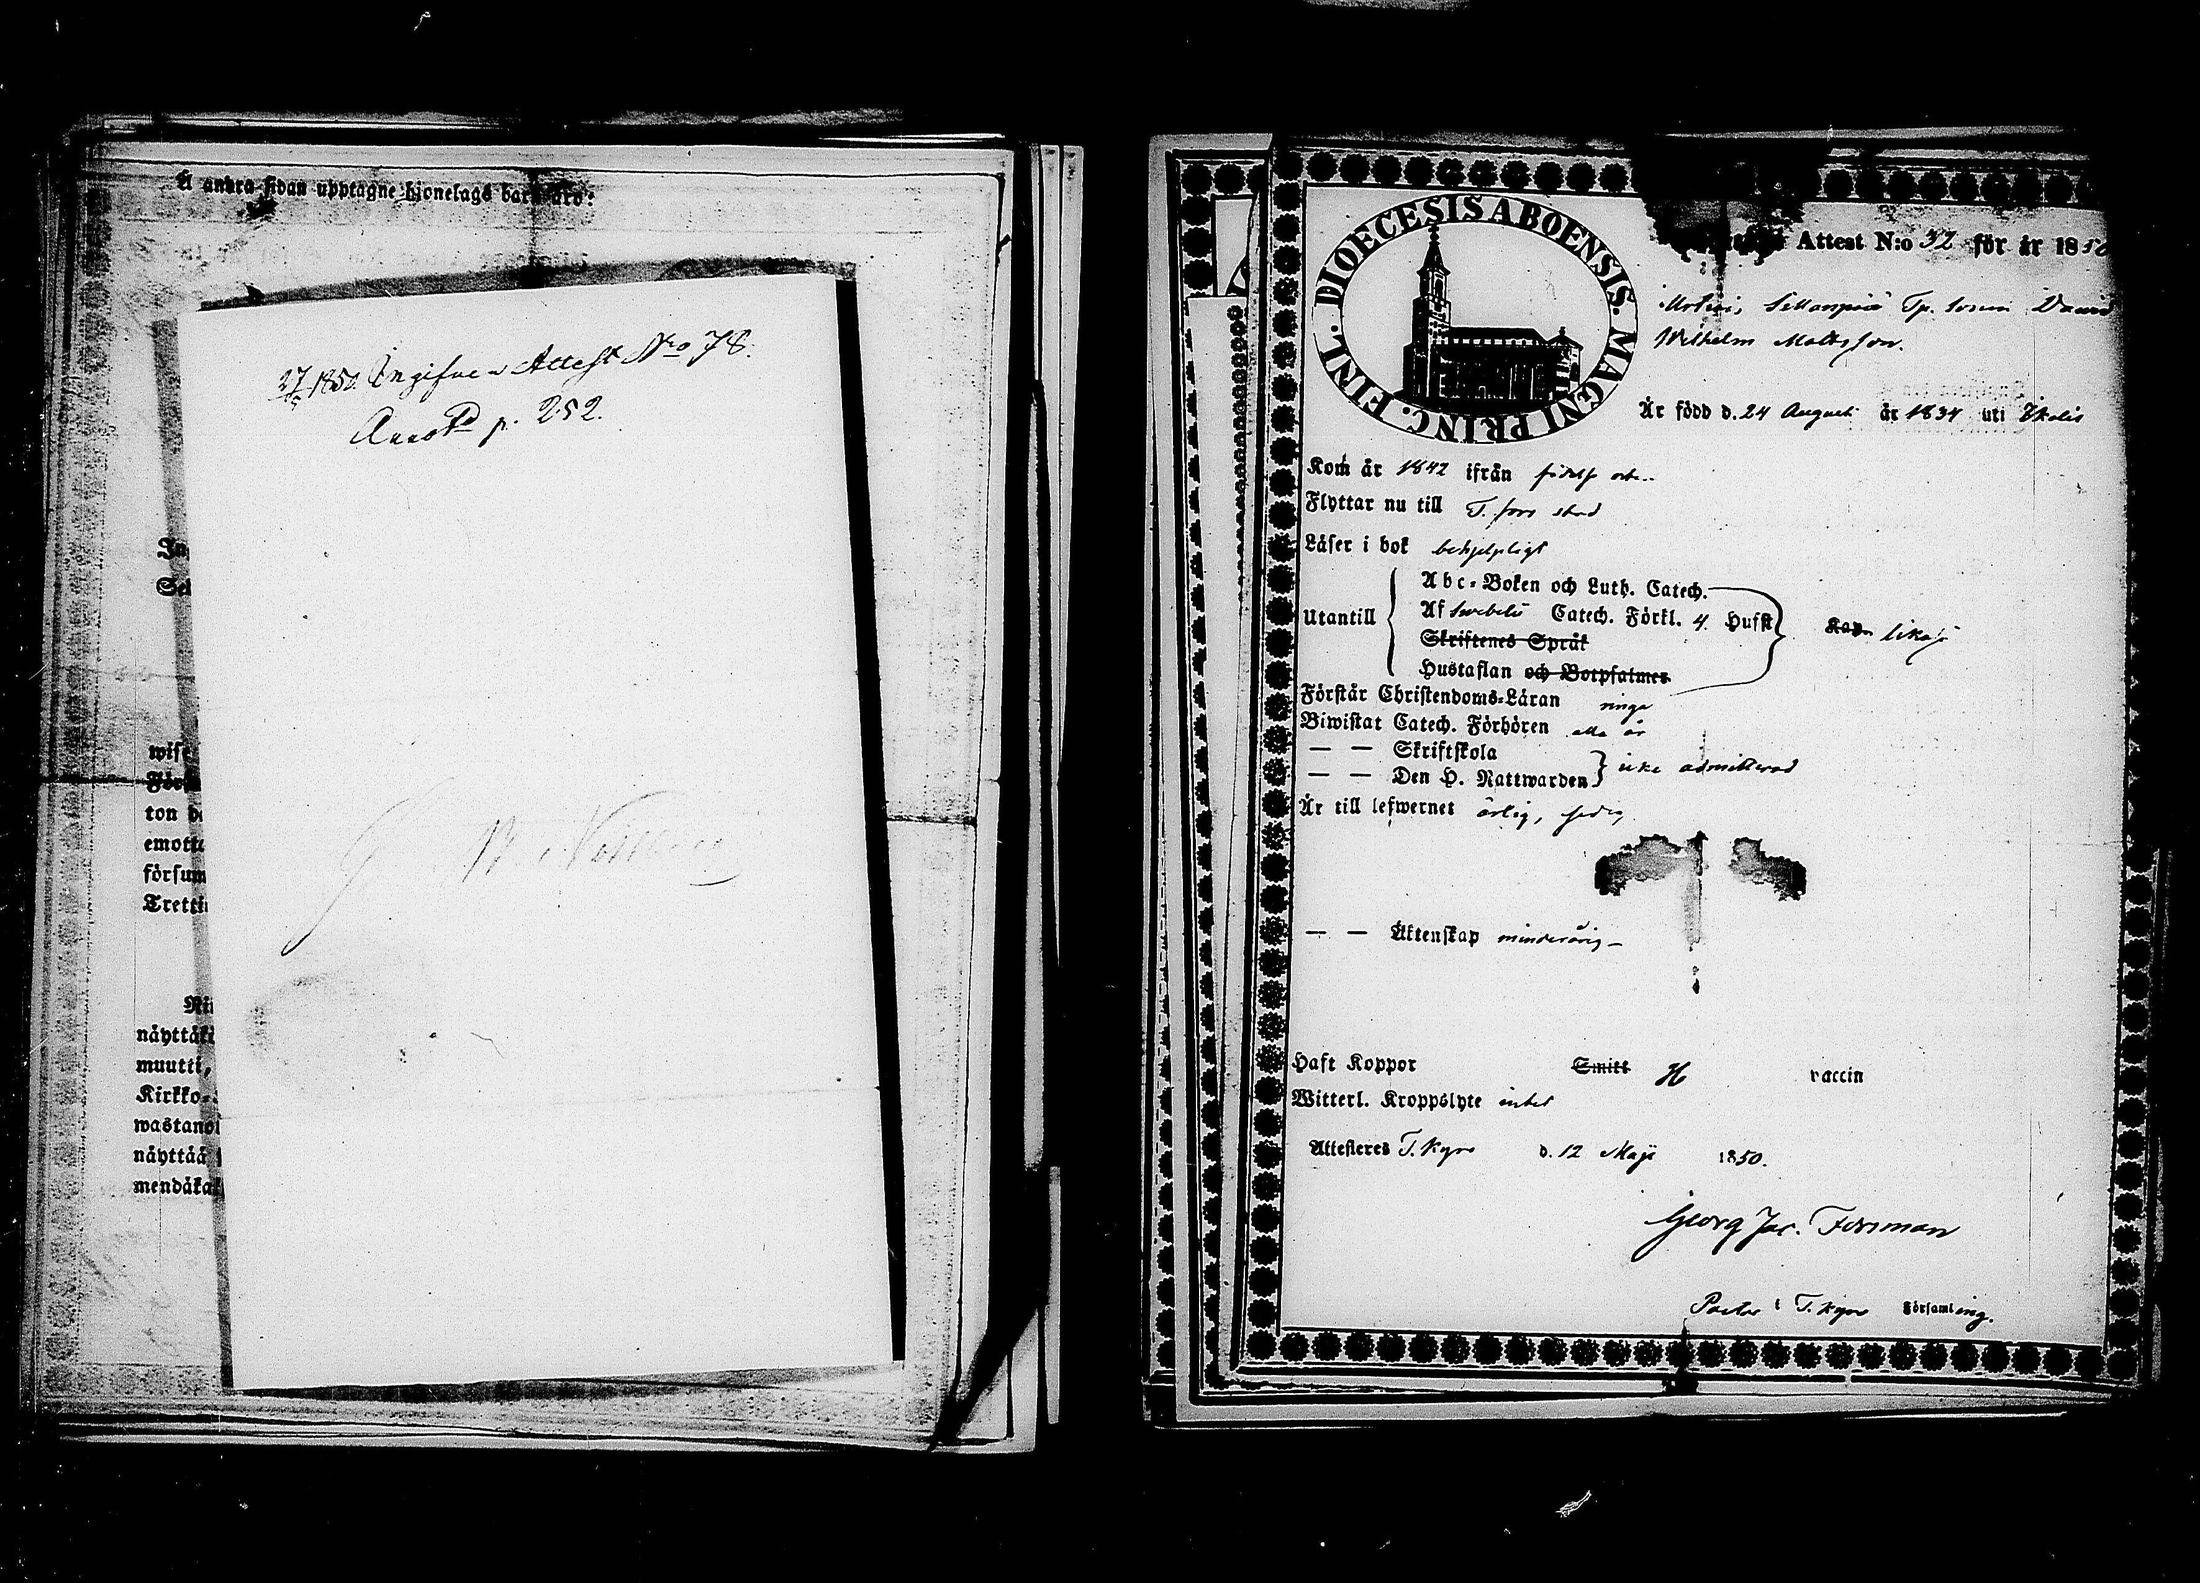 å andra sidan upptagne hjonelags barn äro:
27/5 1850. Ingifven Attest No 78.
Annot. p. 252.
In
Se
wis
För
ton
emott
försum
Tretti
näyttä
muutti,
Kirkko-
wastano
näyttää
mendäkä
DIOECESIS ABOENSIS. MAGNI PRINC. FINL.
Attest N:o 32 för år 1850
Sillanpää Tp. sonen David
Wilhelm Mattsson.
Är född d. 24 August år 1834 uti Ikalis
Kom år 1842 ifrån födelse ort
Flyttar nu till T. fors stad
Läser i bok behjelpligt
Utantill
Abc-Boken och Luth. Catech.
Af Svebelii Catech. Förkl. 4 Hufst
Skriftenes Språk
Hustaflan och Botpsalmer
Kan lika
Förstår Christendoms-Läran ringa
Biwistat Catech. Förhören alla år
— — Skriftskola
— — Den H. Nattwarden } icke admitterad
Är till lefwernet ärlig,
— — Äktenskap minderårig —
Haft Koppor Smitt H vaccin
Witterl. Kroppslyte intet
Attesteres T. Kyro d. 12 Maji 1850.
Georg Jac. Forsman
Pastor i T. Kyro Församling.